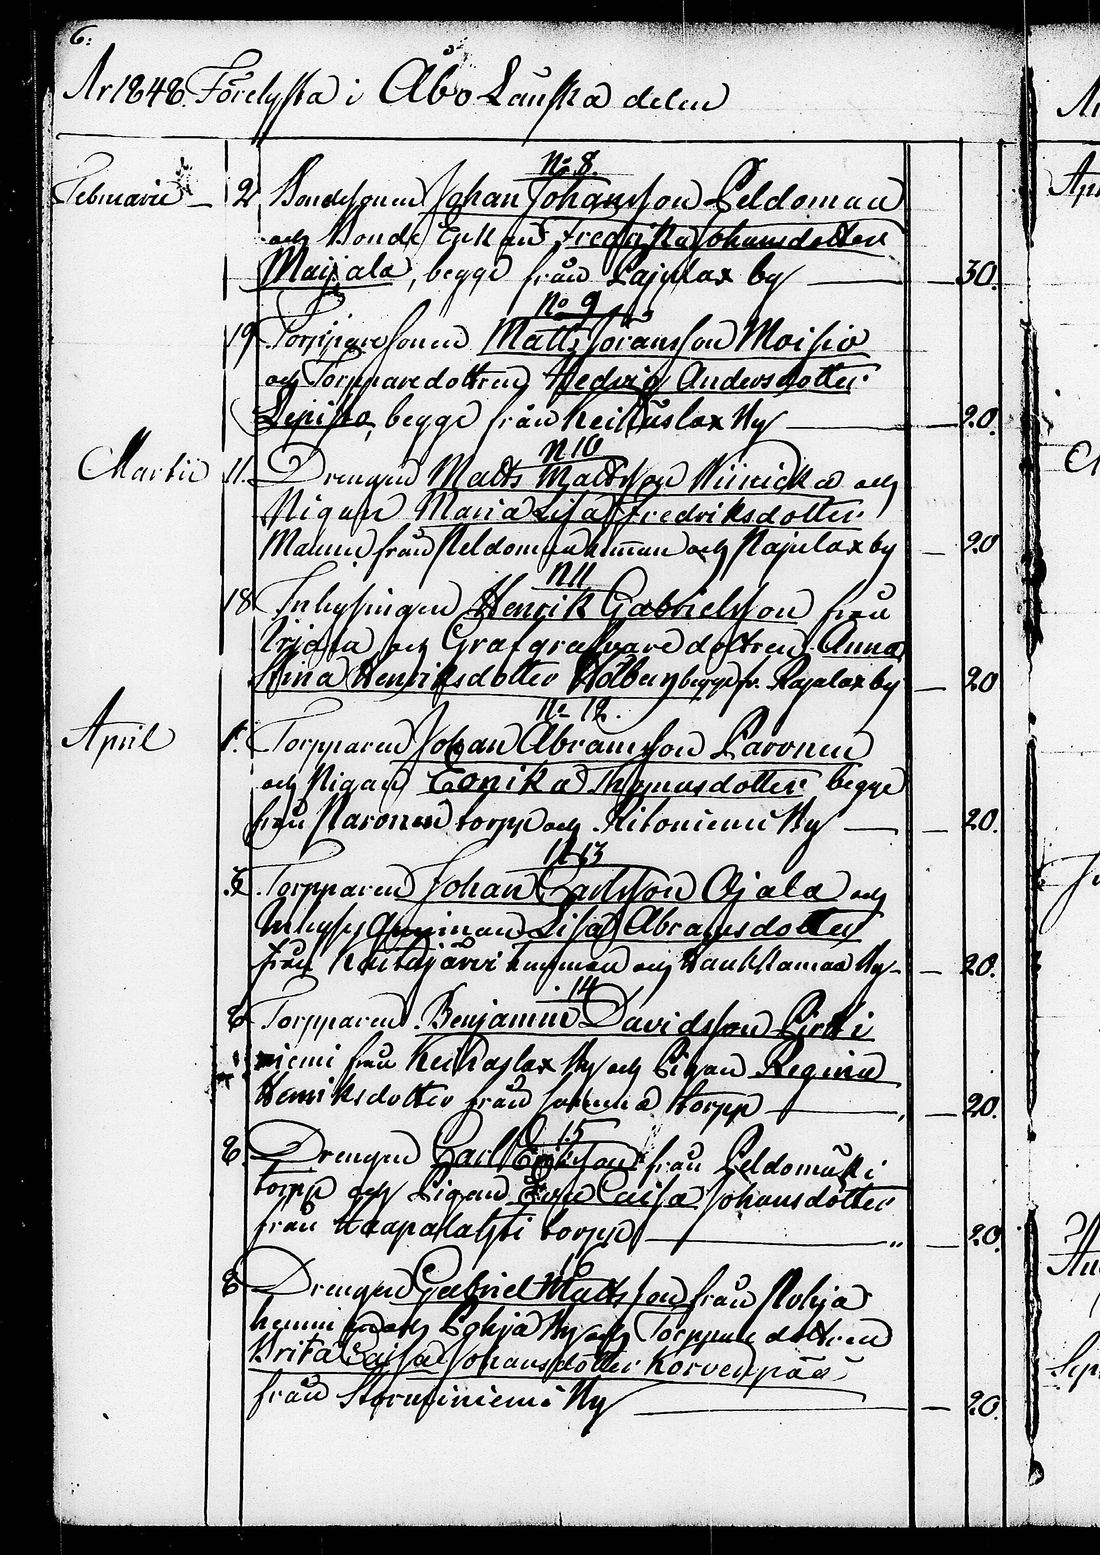 6.
År 1848. Förelysta i Åbo Länska delen
No 8.
Februarii 2 Bondesonen Johan Johansson Peldoman
och Bonde Enkan Fredrika Johansdotter
Maijala, begge från Rajulax by 30.
No 9
19 Torpparesonen Matts Göransson Moisio
och Torpparedottren Hedvig Andersdotter
Lepisto, begge från Keikuslax By 20.
N 10
Martii 11. Drengen Matts Mattsson Niinicka och
Pigan Maria Lisa Fredriksdotter
från Peldoman hemman och Rajulax by 20
N 11
18 Inhysingen Henrik Gabrielsson från
och Grafgrafvaredottren Anna
Stina Henriksdotter Holberg begge fr. Rajalax by 20
N 12.
April 1. Torpparen Johan Abramsson Paronen
och Pigan Eonika Thomasdotter begge
från Paronen torpp och Ritoniemi By 20.
N 13
Torpparen Johan Carlsson Ojala och
Inhyses Qvinnan Lisa Abramsdotter
från hemman och By 20.
14
8 Torpparen Benjamin Davidsson
niemi från By och Pigan Regina
Henriksdotter från torpp 20.
15
8. Drengen Carl Eriksson från Peldomäki
torpp och Pigan Caisa Johansdotter
från Haapalatsti torpp 20.
16
8 Drengen Gabriel Mattsson från
hemman och By och Torppare dottren
Brita Caisa Johansdotter Korvenpää
från Storminiemi By 20.